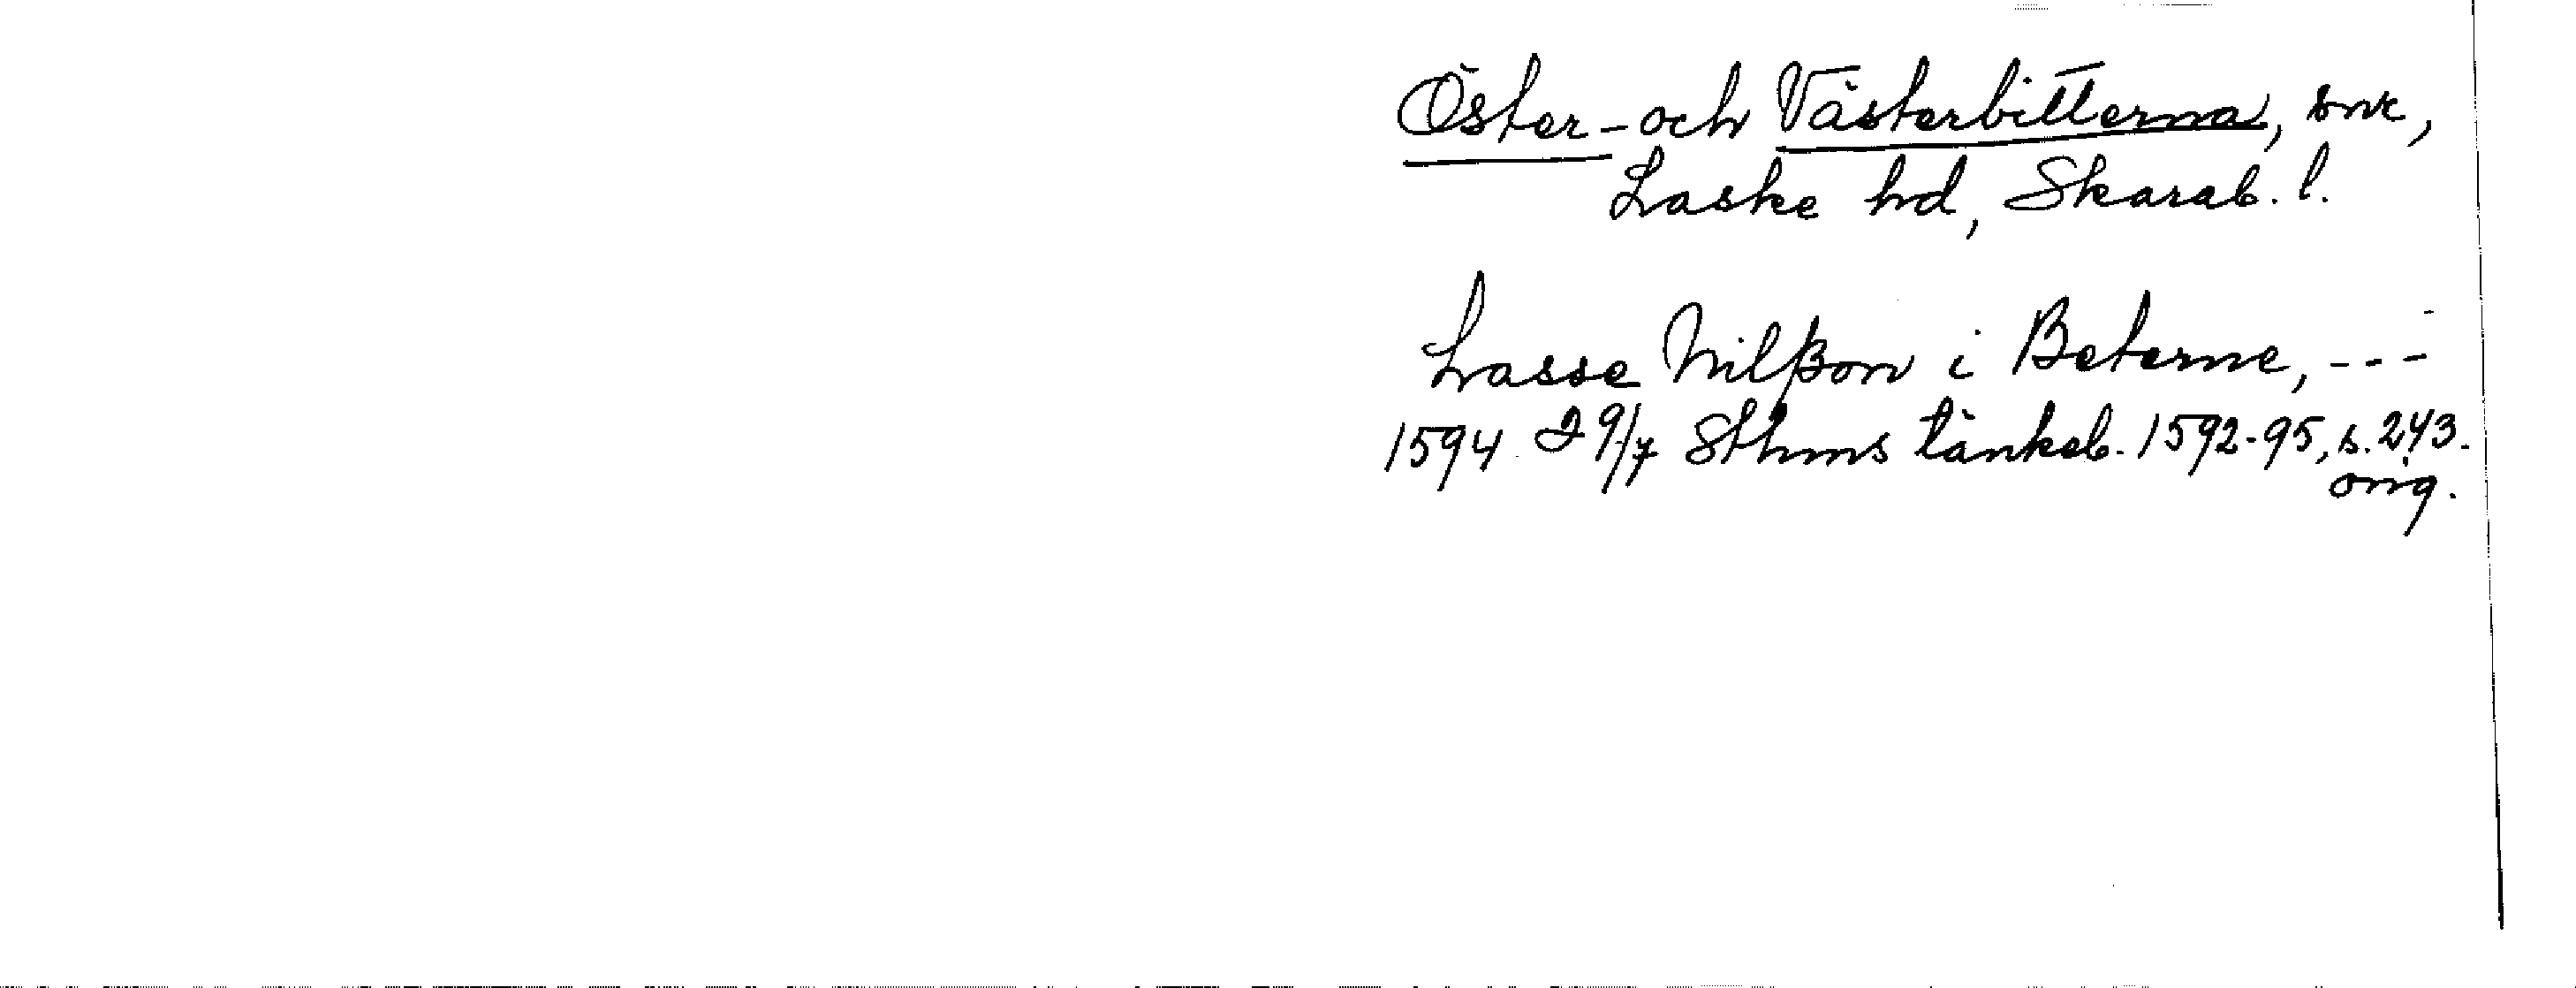 Öster- och Västerbitterna, snr,
Laske hd, Skarab. l.
Lasse Nilßon i Beterne, ---
1594 29/7 Sthms tänkeb. 1592-95, s. 243.
orig.